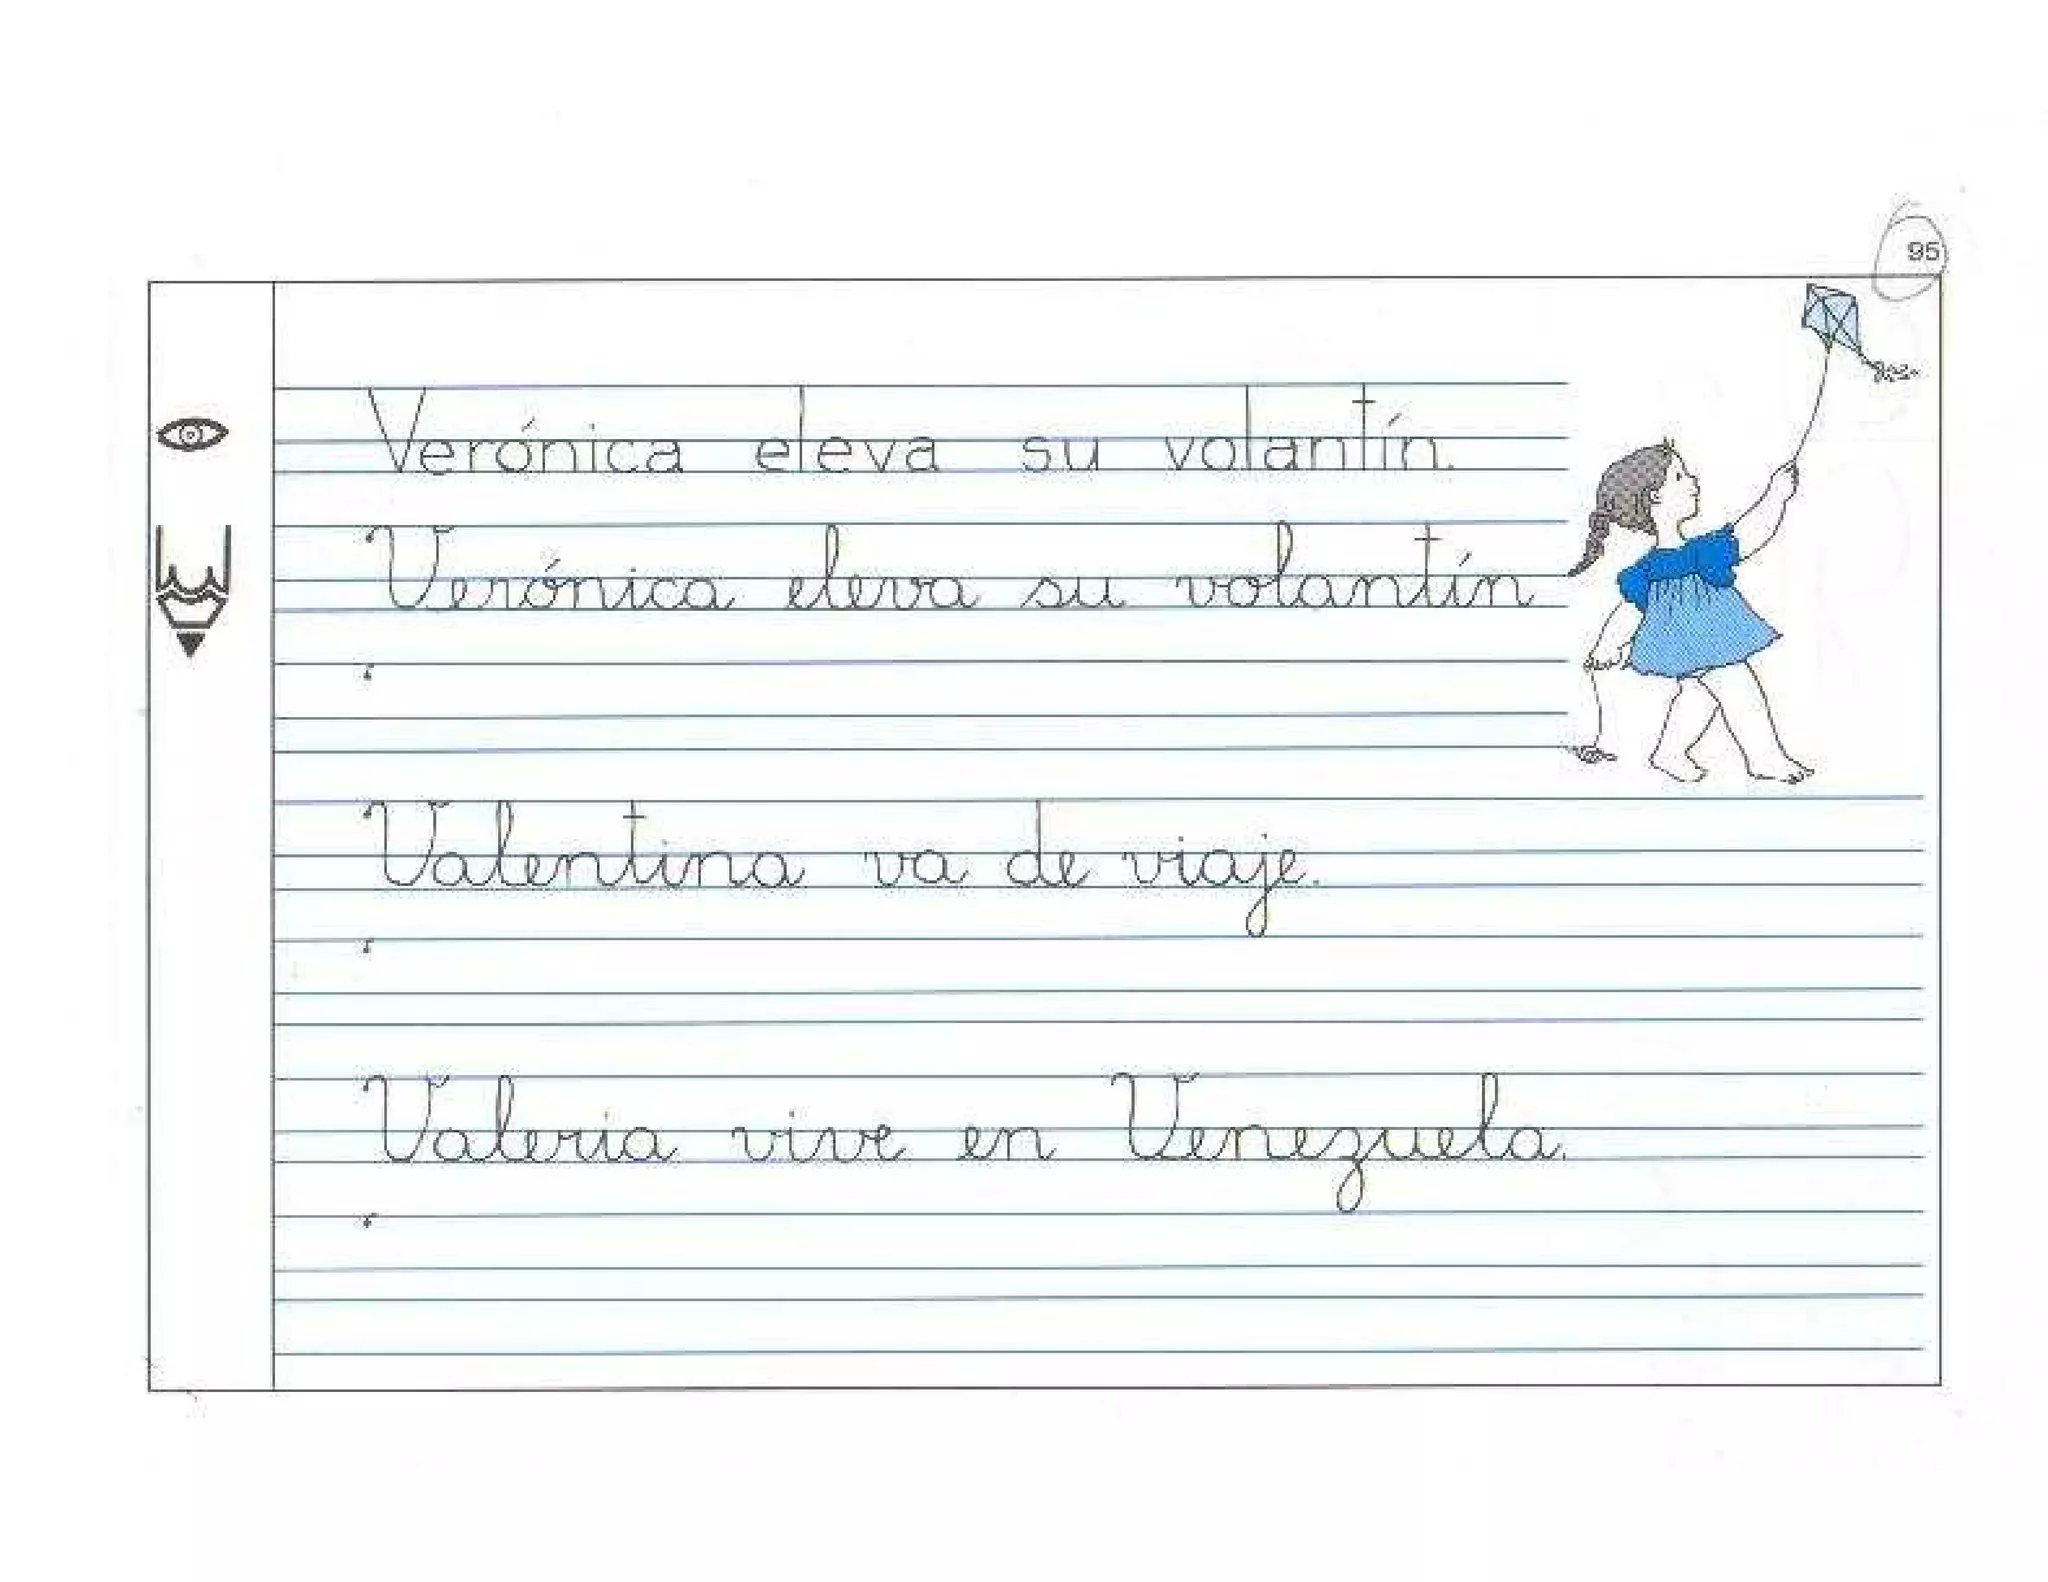 95
Verónica eleva su volantín.
Verónica eleva su volantín
Valentina va de viaje.
Valeria vive en Venezuela.